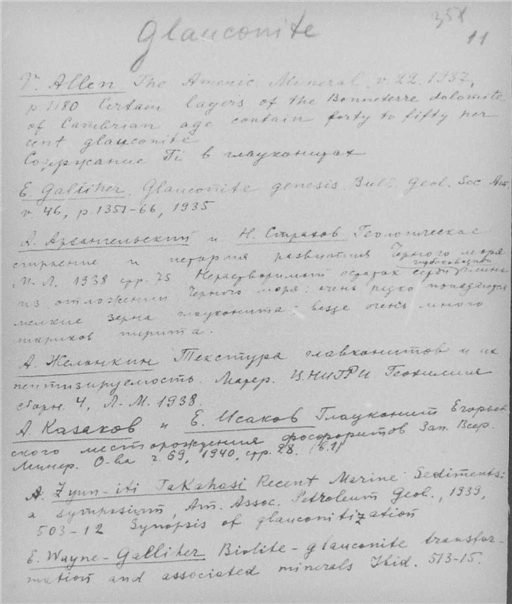 Glauconite
351
11
V. Allen The Americ Mineral v. 22. 1937,
p. 1180 Certain layers of the Bonneterre dolomite
of Cambrian age contain forty to fifty per
cent glauconite
Содержание Ti в глауконитах
E. Galliher. Glauconite genesis. Bull. Geol. Soc. Am.
v 46, p. 1351-66, 1935
А. Архангельский и Н. Страхов Геологическое
строение и история развития Черного моря
М.-Л. 1938 стр. 75 Нерастворимый остаток серой глины
из отложений Черного моря: очень редко попадаются
мелкие зерна глауконита везде очень много
шариков пирита.
А. Желонкин Текстура главконитов и их
пептизируемость. Матер. ЦНИГРИ Геохимия
сборн. 4, Л.-М. 1938.
А Казаков и Е. Исаков Глауконит Егорьев-
ского месторождения фосфоритов Зап. Всер.
Минер. О-ва ч 69, 1940, стр. 28. (в. 1)
A. Zyun-iti Takahasi Recent Marine Sediments:
a symposium, Am. Assoc. Petroleum Geol., 1939,
503-12 Synopsis of glauconitization
E. Wayne-Galliher Biolite-glauconite transfor-
mation and associated minerals Ibid. 513-15.